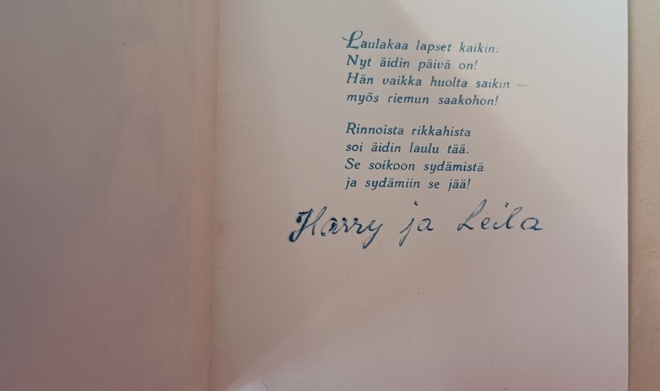 Laulakaa lapset kaikin:
Nyt äidin päivä on!
Hän vaikka huolta saikin —
myös riemun saakohon!
Rinnoista rikkahista
soi äidin laulu tää.
Se soikoon sydämistä
ja sydämiin se jää!
Harry ja Leila